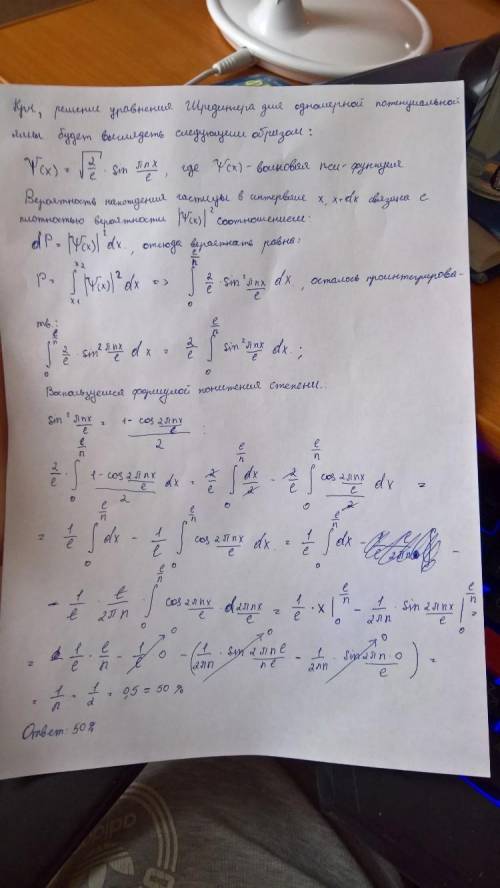 Крч, решение уравнения Шредингера для одномерной потенциальной
ямы будет выглядеть следующим образом:
Ψ(x) = √(2/ℓ) · sin πnx/ℓ, где Ψ(x) - волновая пси-функция
Вероятность нахождения частицы в интервале x, x+dx связана с
плотностью вероятности |Ψ(x)|² соотношением:
dP = |Ψ(x)|² dx, отсюда вероятность равна:
P = ∫_{x₁}^{x₂} |Ψ(x)|² dx => ∫_0^{ℓ/n} 2/ℓ · sin² πnx/ℓ dx, осталось проинтегрирова-
ть:
∫_0^{ℓ/n} 2/ℓ sin² πnx/ℓ dx = 2/ℓ ∫_0^{ℓ/n} sin² πnx/ℓ dx ;
Воспользуемся формулой понижения степени:
sin² πnx/ℓ = (1 - cos 2πnx/ℓ)/2 :
2/ℓ · ∫_0^{ℓ/n} (1 - cos 2πnx/ℓ)/2 dx = 2/ℓ ∫_0^{ℓ/n} dx/2 - 2/ℓ ∫_0^{ℓ/n} (cos 2πnx/ℓ)/2 dx =
= 1/ℓ ∫_0^{ℓ/n} dx - 1/ℓ ∫_0^{ℓ/n} cos 2πnx/ℓ dx = 1/ℓ ∫_0^{ℓ/n} dx -
- 1/ℓ · ℓ/2πn · ∫_0^{ℓ/n} cos 2πnx/ℓ · d 2πnx/ℓ = 1/ℓ · x |_0^{ℓ/n} - 1/2πn · sin 2πnx/ℓ |_0^{ℓ/n} =
= 1/ℓ · ℓ/n - 1/ℓ · 0 - (1/2πn · sin 2πnℓ/nℓ - 1/2πn · sin 2πn·0/ℓ) =
= 1/n = 1/2 = 0,5 = 50 %
Ответ: 50%